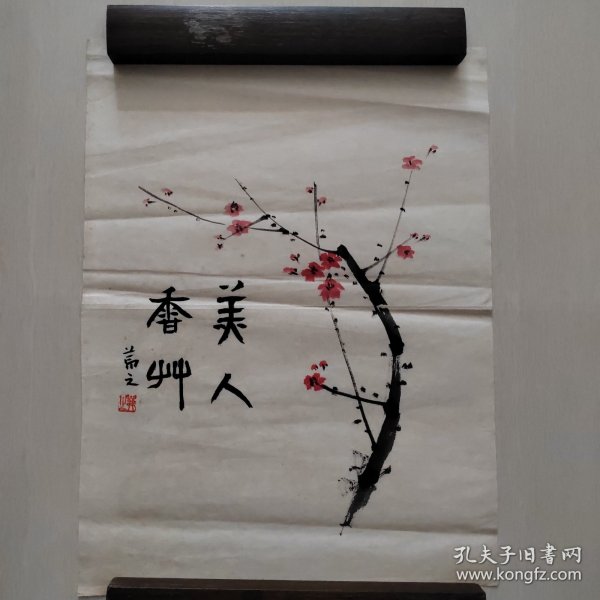 美人
香艸
孔夫子旧書网
www.kongfz.com